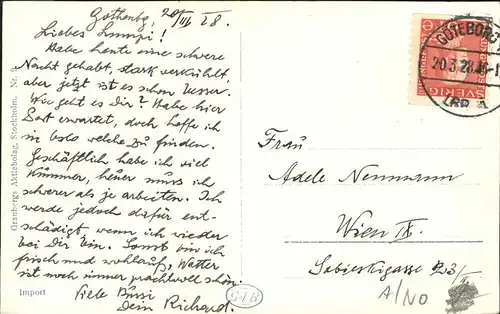 Gothenbg, 20/III 28.
Liebes Lumpi!
Habe heute eine schwere
Nacht gehabt, stark verkühlt,
aber jetzt ist es schon besser.
Wie geht es dir? Habe hier
Post erwartet, doch hoffe ich
in Oslo welche zu finden.
Geschäftlich habe ich viel
Kummer, heuer muss ich
schwerer als je arbeiten. Ich
werde jedoch dafür ent-
schädigt wenn ich wieder
bei Dir bin. Sonst bin ich
frisch und wohlauf, Wetter
ist noch immer prachtvoll schön.
Viele Bussi
Dein Richard.
Granbergs Aktiebolag, Stockholm. Nr. 9.
Import
GAB
SVERIGE
GÖTEBORG
20.3.28
LBR A
Frau
Adele Neumann
Wien IX.
Sobieskigasse 23/
A/NO